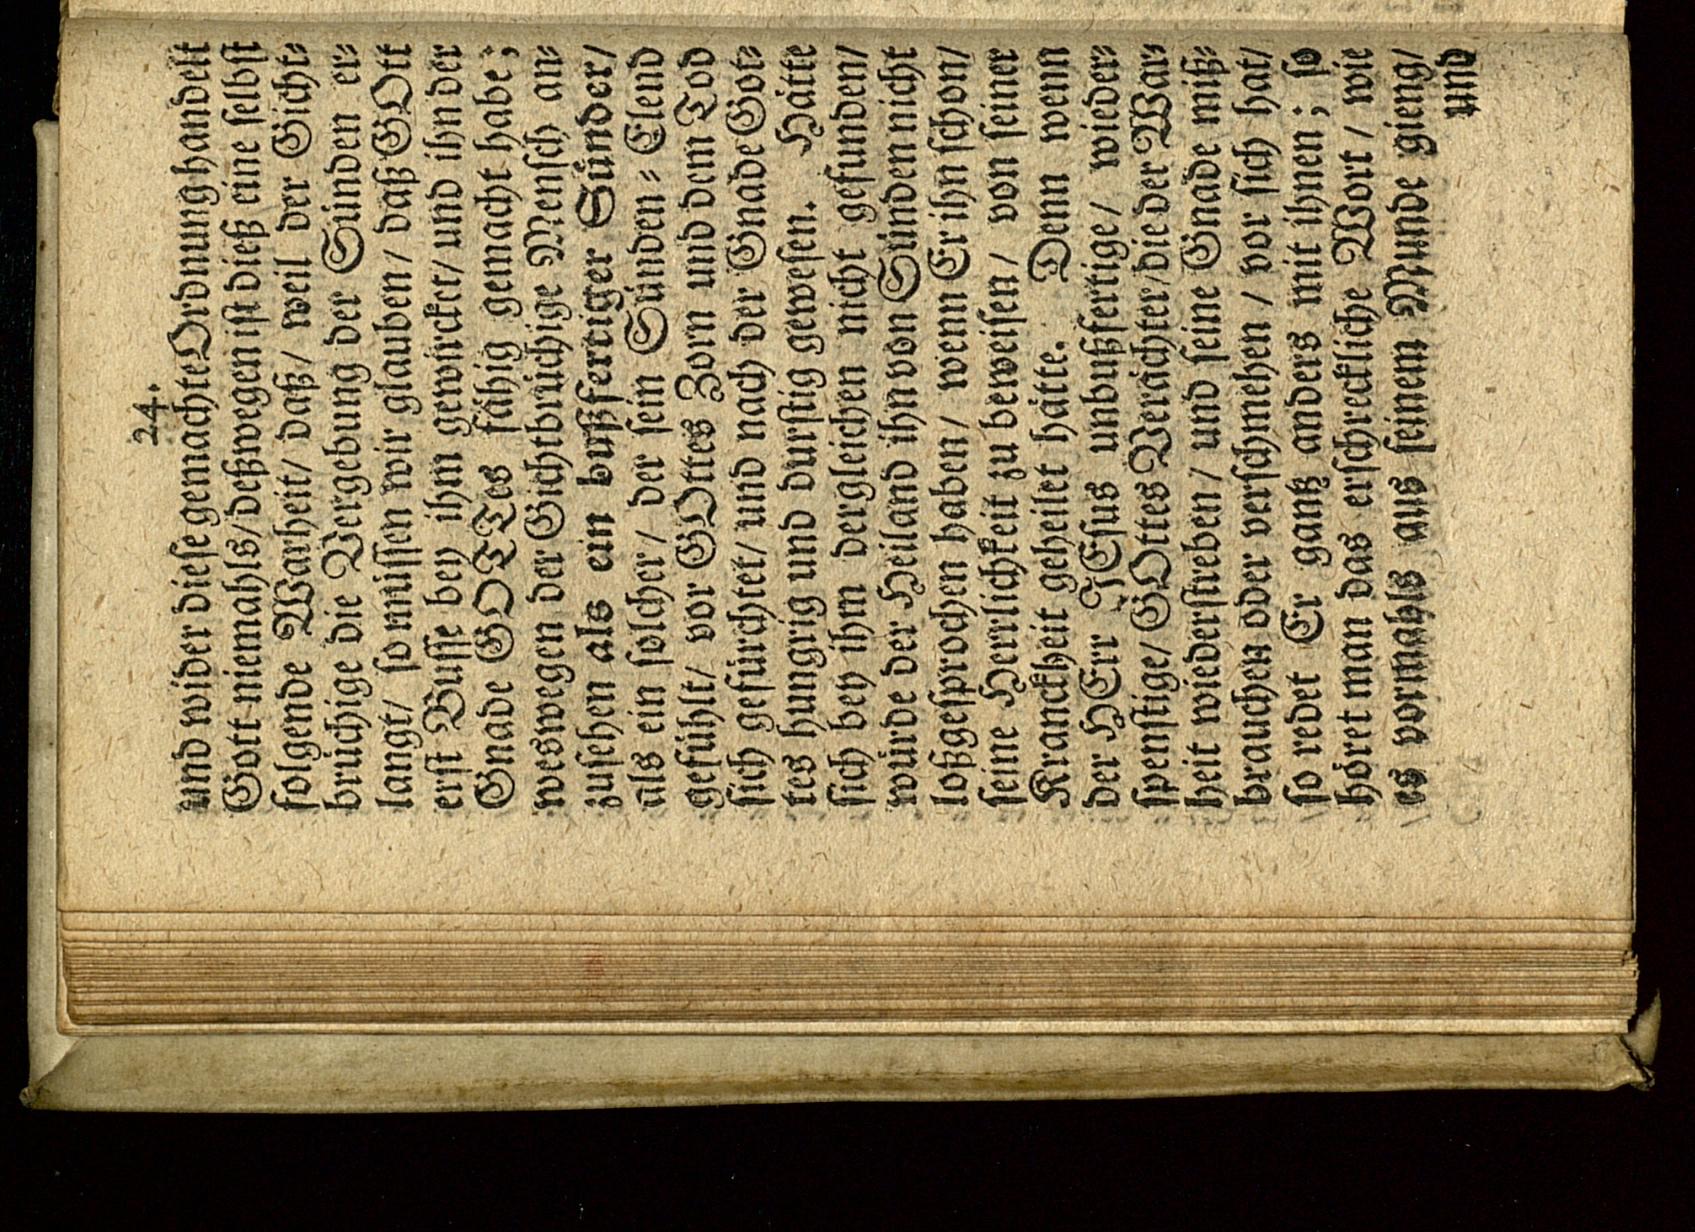 24.
und wider diese gemachte Ordnung handelt
Gott niemahls/ deßwegen ist dieß eine selbst
folgende Warheit/ daß/ weil der Gicht⸗
brüchige die Vergebung der Sünden er⸗
langt/ so müssen wir glauben/ daß GOtt
erst Busse bey ihm gewürcket/ und ihn der
Gnade GOTTes fähig gemacht habe;
weswegen der Gichtbrüchige Mensch an⸗
zusehen als ein bußfertiger Sünder/
als ein solcher/ der sein Sünden⸗Elend
gefühlt/ vor GOttes Zorn und dem Tod
sich gefürchtet/ und nach der Gnade Got⸗
tes hungrig und durstig gewesen. Hätte
sich bey ihm dergleichen nicht gefunden/
würde der Heiland ihn von Sünden nicht
loßgesprochen haben/ wenn Er ihn schon/
seine Herrlichkeit zu beweisen/ von seiner
Kranckheit geheilet hätte. Denn wenn
der HErr JEsus unbußfertige/ wieder⸗
spenstige/ GOttes Verächter/ die der War⸗
heit wiederstreben/ und seine Gnade miß⸗
brauchen oder verschmehen/ vor sich hat/
so redet Er gantz anders mit ihnen; so
höret man das erschreckliche Wort/ wie
es vormahls aus seinem Munde gieng/
und